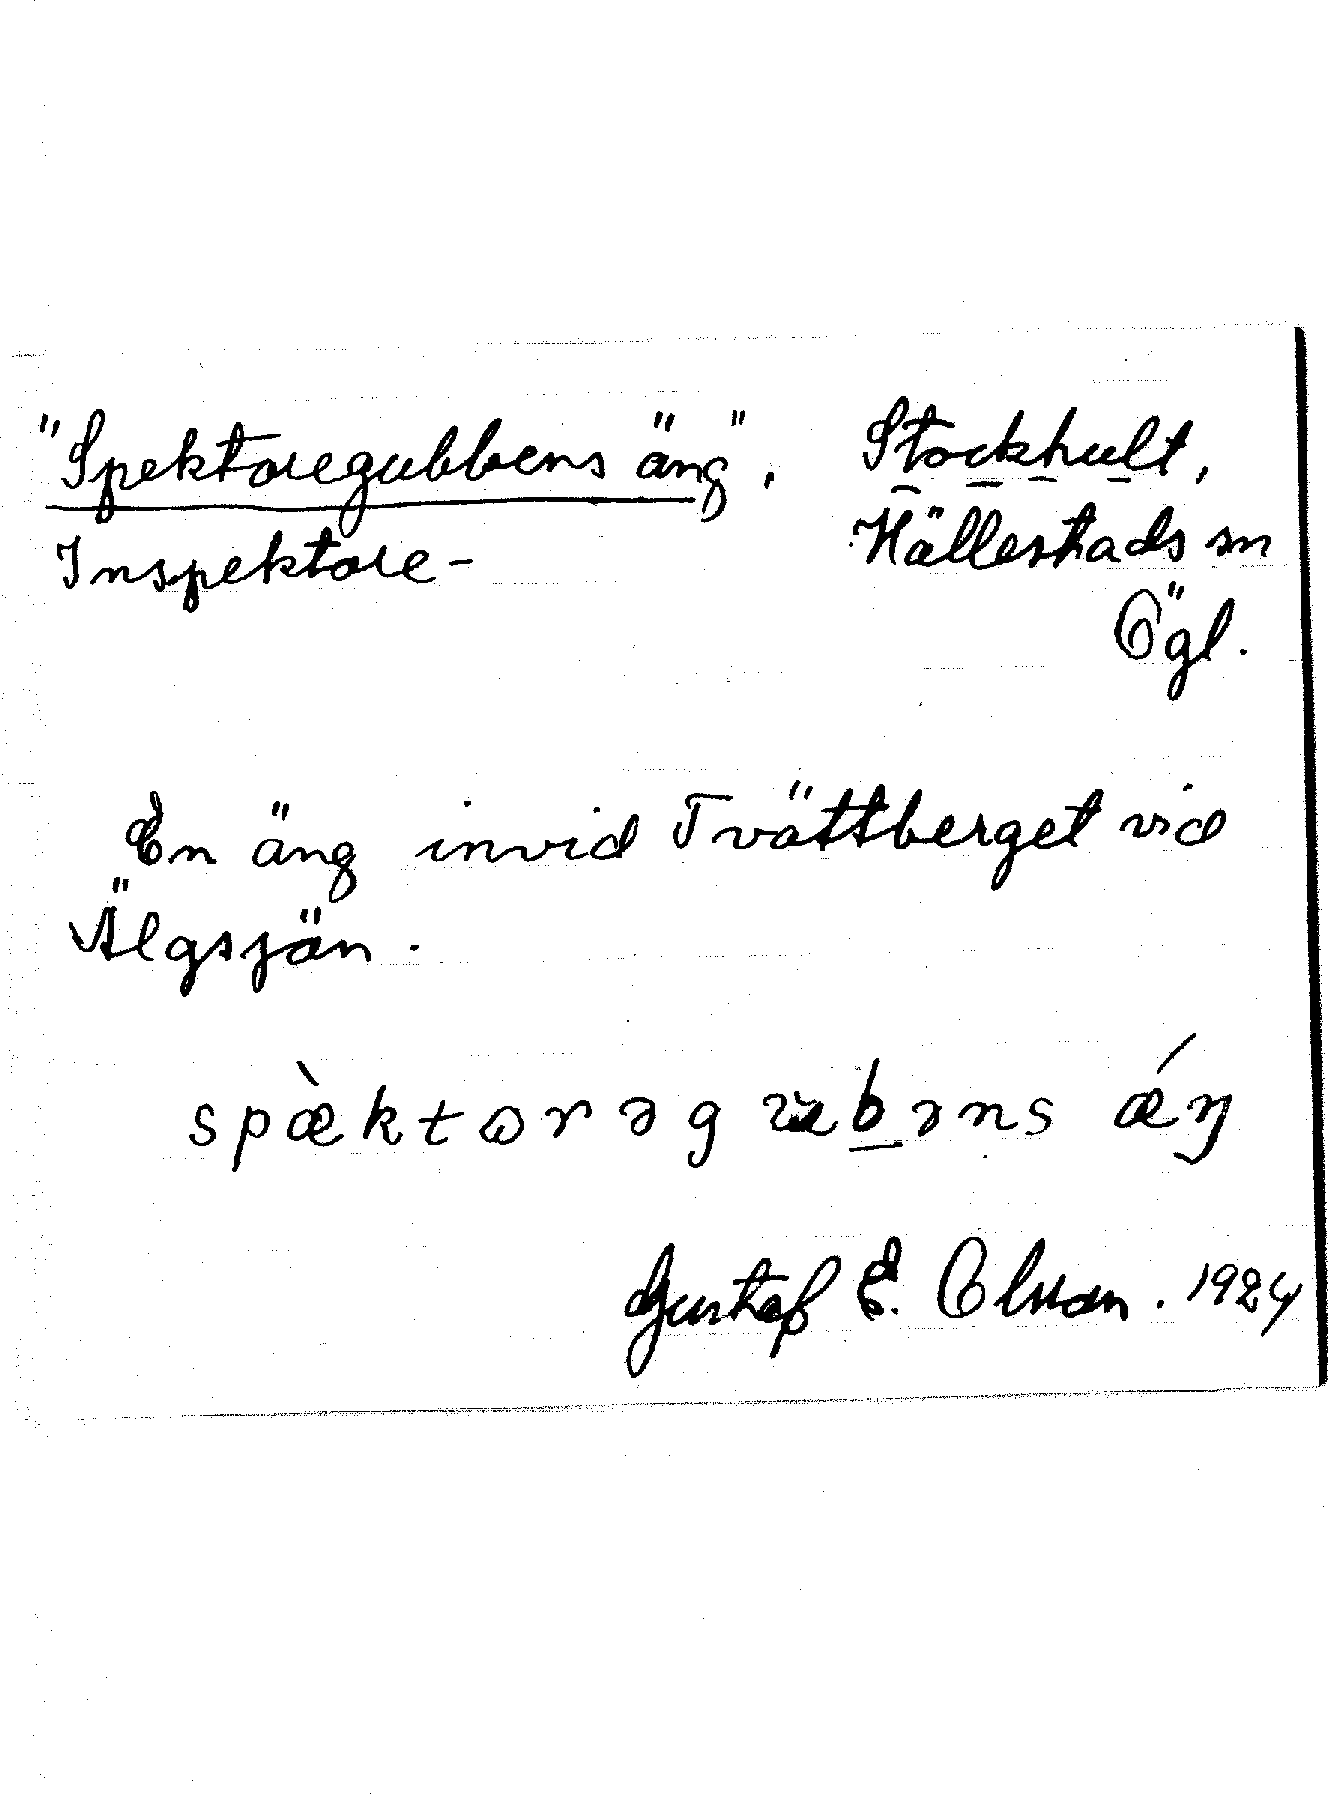 "Spektoregubbens äng", Stockhult,
Inspektore- Hällestads sn
Ögl.
En äng invid Tvättberget vid
Älgsjön.
spæ̀ktωrəgubəns ǽŋ
Gustaf E. Olsson. 1924